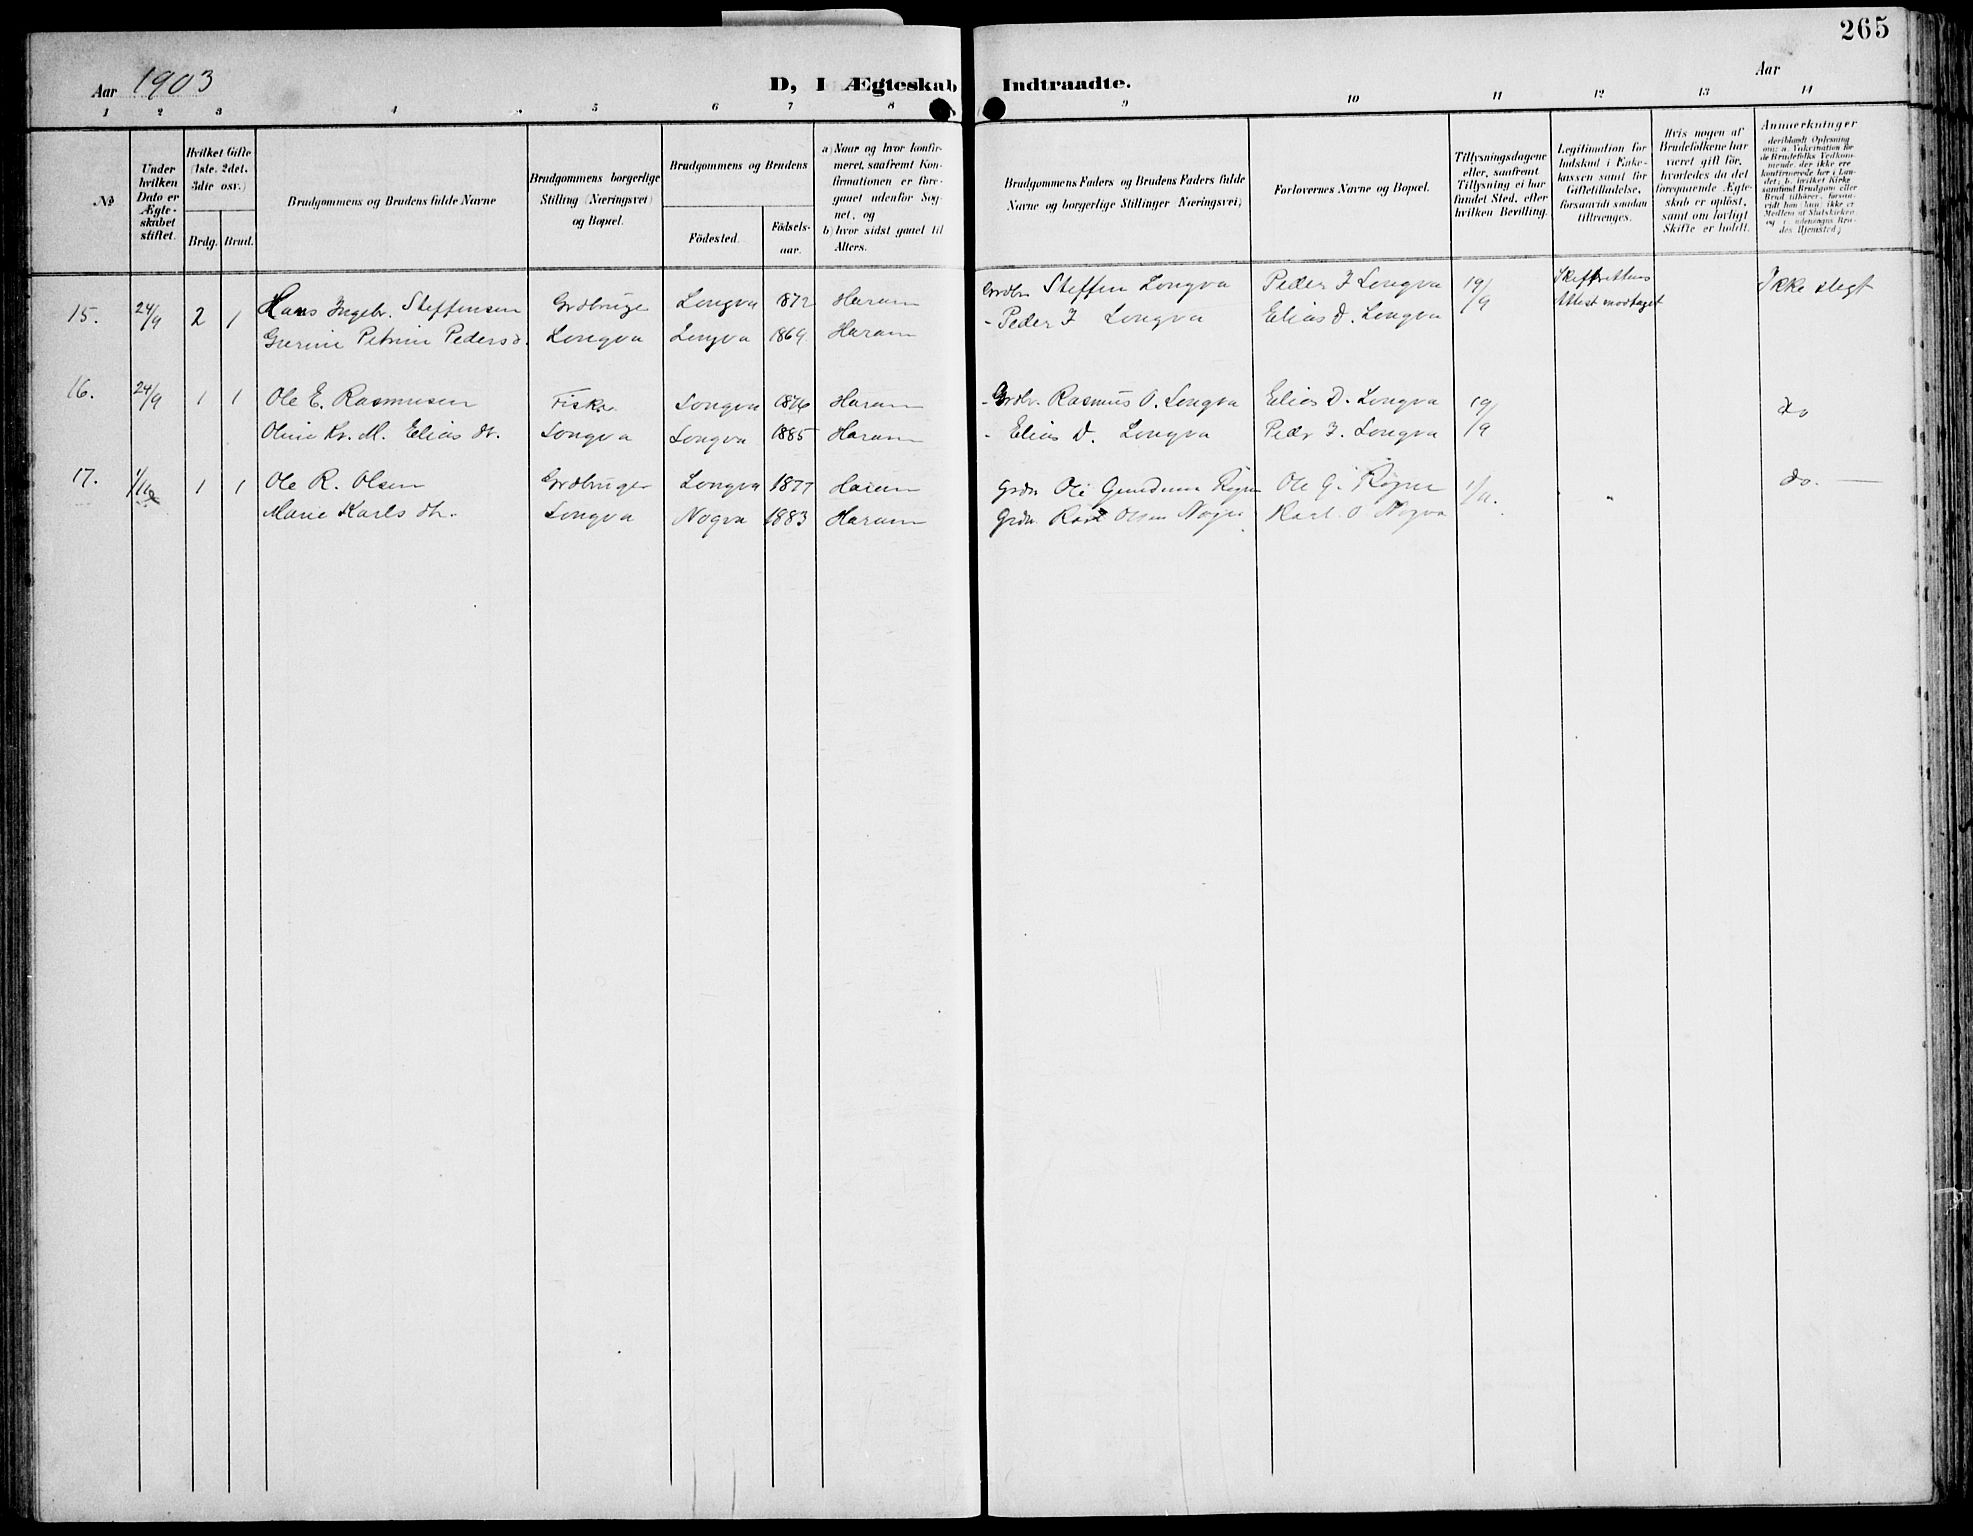 265
Aar 1903
D, I Ægteskab Indtraadte.
Aar
1 2 3 4 5 6 7 8 9 10 11 12 13 14
No
Under hvilken Dato er Ægteskabet stiftet.
Hvilket Gifte (1ste, 2det, 3die osv.)
Brdg. Brud.
Brudgommens og Brudens fulde Navne
Brudgommens borgerlige Stilling (Næringsvei) og Bopæl.
Brudgommens og Brudens
Fødested. Fødselsaar.
a) Naar og hvor konfirmeret, saafremt Konfirmationen er foregaaet udenfor Sognet, og
b) hvor sidst gaaet til Alters.
Brudgommens Faders og Brudens Faders fulde Navne og borgerlige Stillinger (Næringsvei)
Forlovernes Navne og Bopæl.
Tillysningsdagene eller, saafremt Tillysning ei har fundet Sted, efter hvilken Bevilling.
Legitimation for Indskud i Enkekassen samt for Giftetilladelse, forsaavidt saadan tiltrænges.
Hvis nogen af Brudefolkene har været gift før, hvorledes da det foregaaende Ægteskab er opløst, samt om lovligt Skifte er holdt.
Anmerkninger
15. 24/9 2 1 Hans Ingebr. Steffensen Grdbruger Longva 1872 Haram Grdbr. Steffen Longva Peder I Longva 19/9 Skifterettens Attest modtaget Ikke slegt
Petrine Peders d. Longva Longva 1869 Haram - Peder I Longva Elias D. Longva
16. 24/9 1 1 Ole E. Rasmusen Fisker Longva 1876 Haram - Grdbr. Rasmus O. Longva Elias D. Longva 19/9 do
Oline Kr. M. Elias dr. Longva Longva 1885 Haram - Elias D. Longva Pedr I. Longva
17. 1 1 Ole R. Olsen Grdbruger Longva 1877 Haram Ole Ole G. 1/11. " do.
Marie Karls dtr. Longva Nogva 1883 Haram Karl Olsen Karl O Nogva